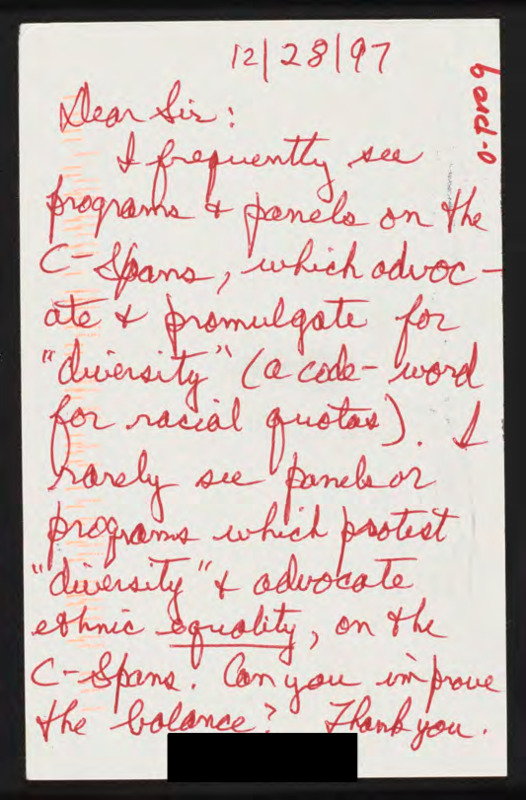 12/28/97
Dear Sir:
I frequently see
programs & panels on the
C-Spans, which advoc-
ate & promulgate for
"diversity" (a code-word
for racial quotas). I
rarely see panels or
programs which protest
"diversity" & advocate
ethnic equality, on the
C-Spans. Can you improve
the balance? Thank you.